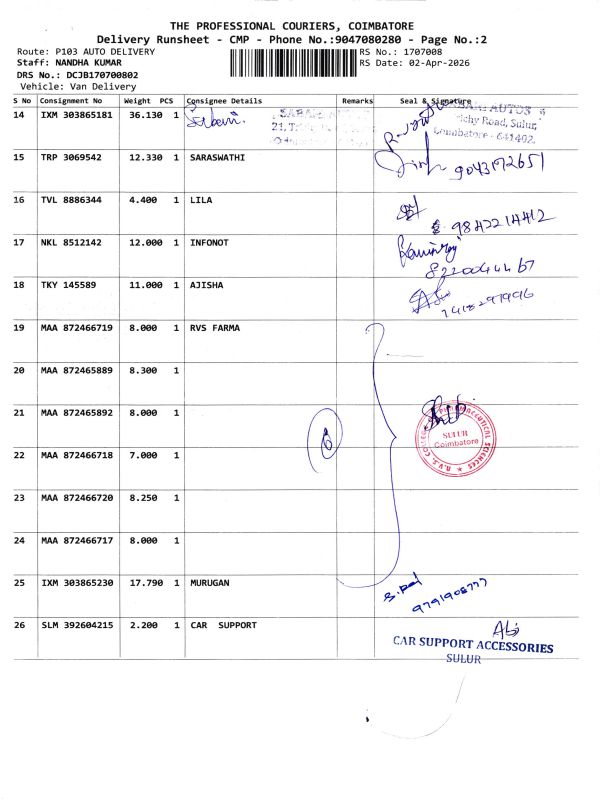 THE PROFESSIONAL COURIERS, COIMBATORE
Delivery Runsheet - CMP - Phone No.:9047080280 - Page No.:2
Route: P103 AUTO DELIVERY
RS No.: 1707008
Staff: NANDHA KUMAR
RS Date: 02-Apr-2026
DRS No.: DCJB170700802
Vehicle: Van Delivery
S No Consignment No Weight PCS Consignee Details Remarks Seal & Signature
14 IXM 303865181 36.130 1
AUTOS
Trichy Road, Sulur,
Coimbatore - 641402.
15 TRP 3069542 12.330 1 SARASWATHI
9043192651
16 TVL 8886344 4.400 1 LILA
9842214412
17 NKL 8512142 12.000 1 INFONOT
8220044467
18 TKY 145589 11.000 1 AJISHA
19 MAA 872466719 8.000 1 RVS FARMA
20 MAA 872465889 8.300 1
21 MAA 872465892 8.000 1
SULUR
Coimbatore
22 MAA 872466718 7.000 1
23 MAA 872466720 8.250 1
24 MAA 872466717 8.000 1
25 IXM 303865230 17.790 1 MURUGAN
9791908777
26 SLM 392604215 2.200 1 CAR SUPPORT
CAR SUPPORT ACCESSORIES
SULUR